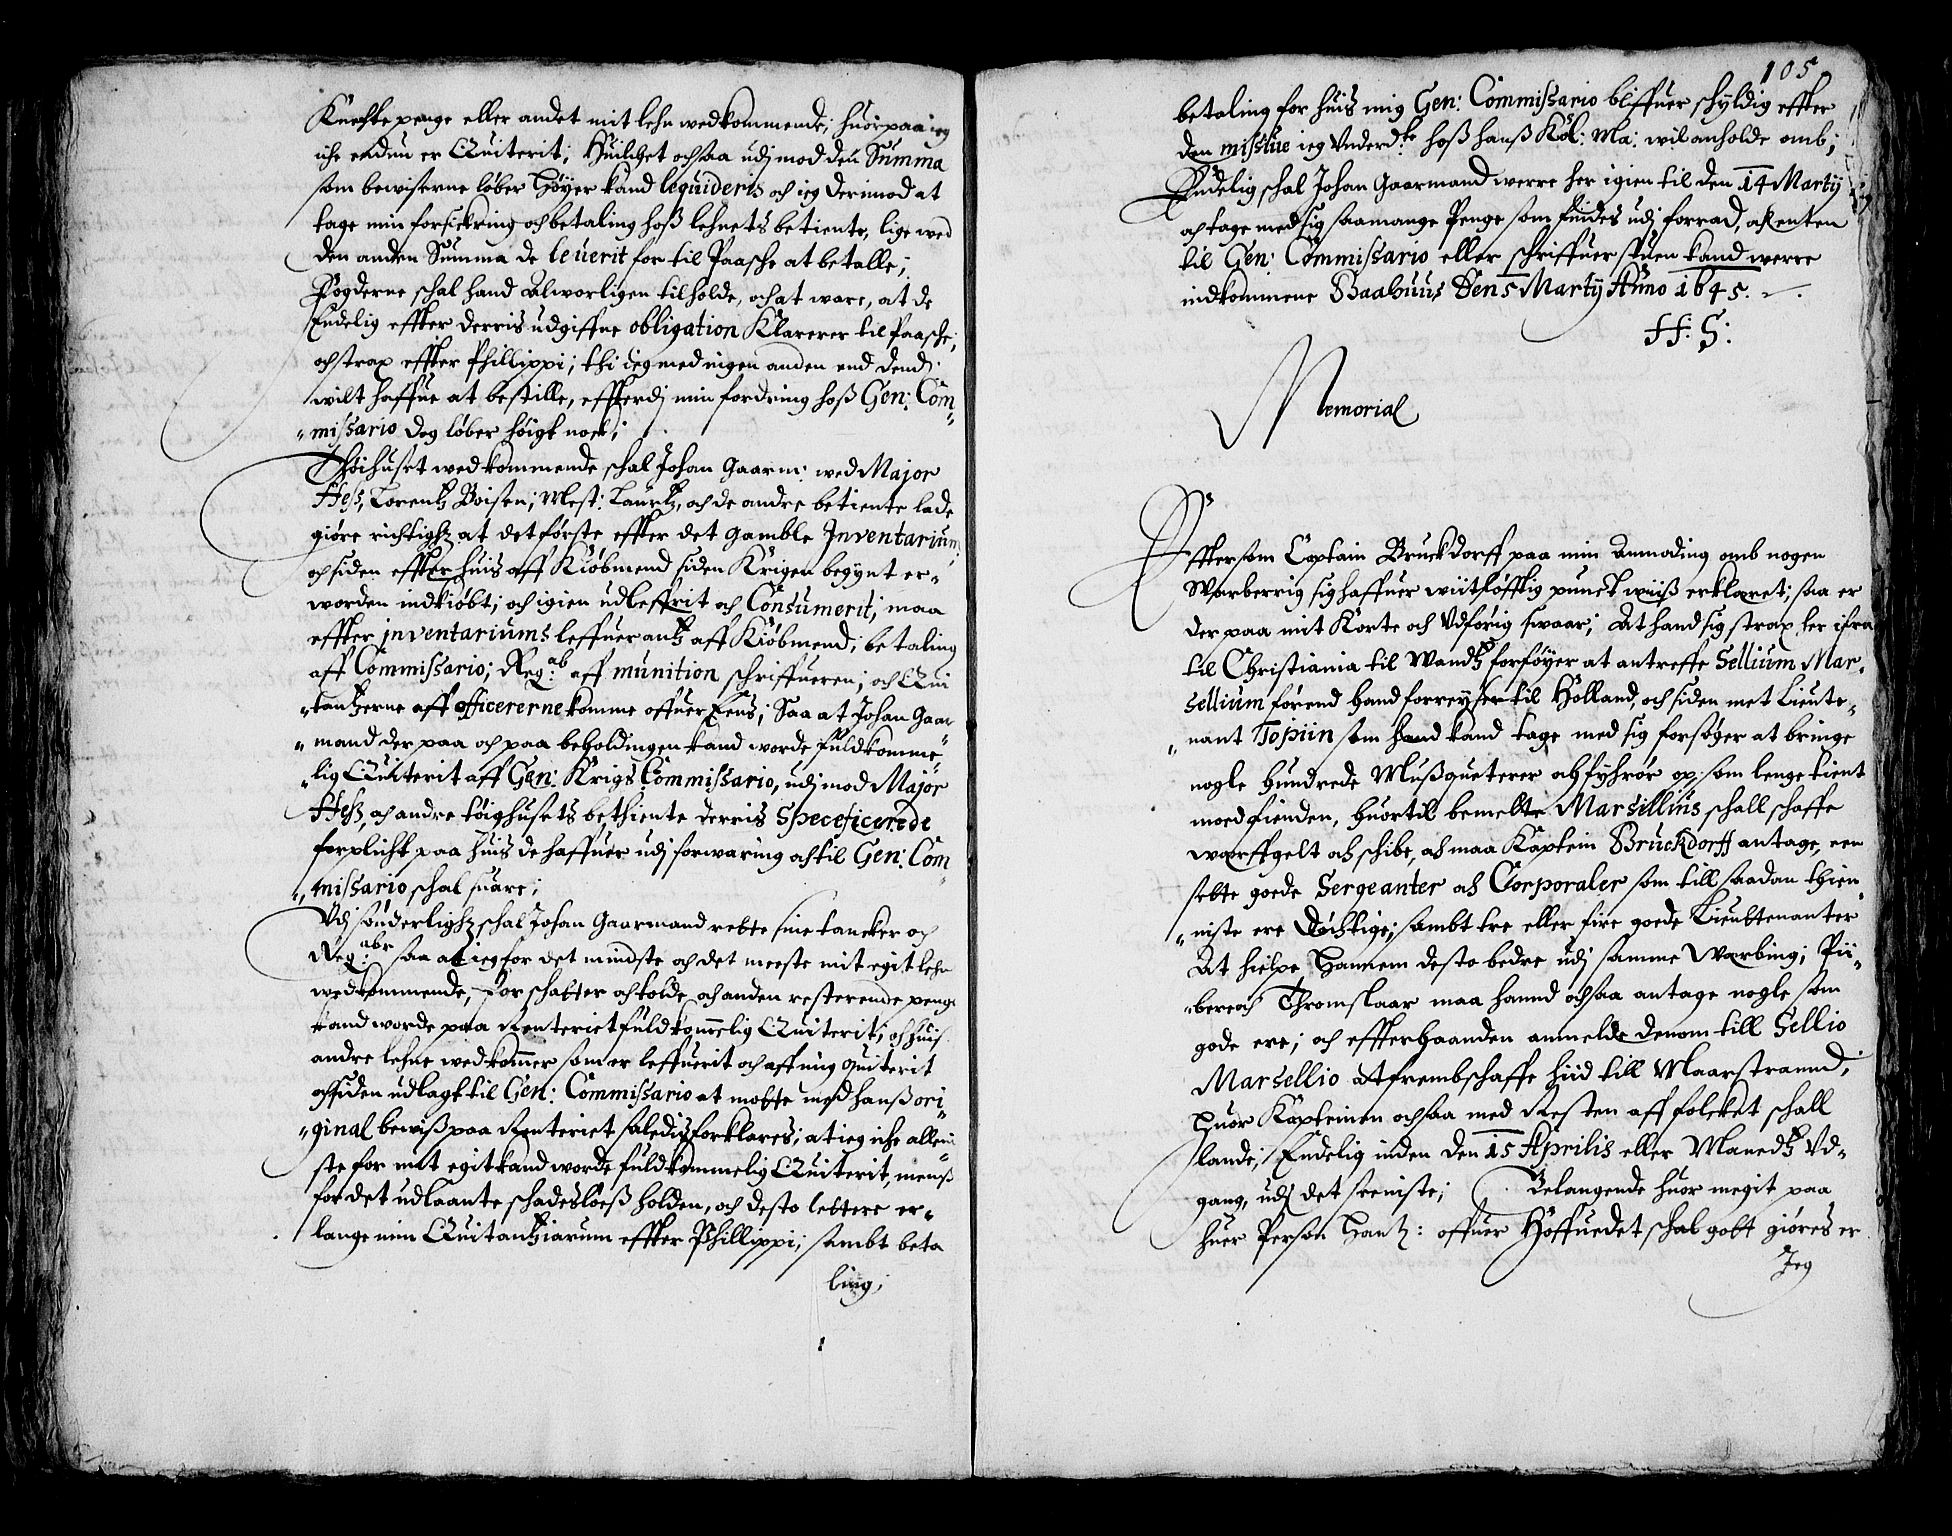 Knechte penge eller andet mit lehn wedkommende; huorpaa ieg
iche endnu er Quiterit; Huilchet ochsaa udj mod den Summa
som bewiserne løber høyer kand lequideris och ieg derimod at
tage min forsickring och betaling hoß lehnets betiente, lige wed
den anden Summa de leuerit for til Paasche at betalle;
Fogderne schal hand alworligen tilholde, och at ware, at de
Endelig effter derris udgiffne obligation Klarerer til Paasche,
och strax effter Phillippi; thi ieg med ingen anden end dend
wilt haffue at bestille, effterdj min fordring hoß Gen: Com„
„missario dog løber høigt nock;
Thøihuset wedkommende schal Johan Gaarm: wed Major
Heß, Lorentz Boisen; Mest: Lauritz, och de andre betiente lade
giøre richtighz at det første effter det gamble Inventarium
och siden effter huis aff Kiøbmend siden Krigen begynt er„
worden indkiøbt; och igien udleffrit och Consumerit; maa
effter inventariums leffuerantz aff Kiøbmend; betaling
aff Commissario; Regab: aff munition schriffueren; och Qui
„tantzerne aff officererne komme offuer Eens; Saa at Johan Gaar„
„mand der paa och paa beholdingen kand worde fuldkomme„
„lig Quiterit aff Gen: Krigs Commissario, udj mod Major
Heß, och andre tøighusets bethiente derris Speceficerede
forplicht paa huis de haffuer udj forwaring och til Gen: Com„
„missario schal suare;
Udj sønderlighz schal Johan Gaarmand rette sine tancker och
Regabr: saa at ieg for det mindste och det meeste mit egit lehn
wedkommende, for schatter och tolde och anden resterende penge
kand worde paa Renteriet fuldkommelig Quiterit; och huis
andre lehne wedkommer som er leffuerit och aff mig quiterit
och siden udlagt til Gen: Commissario at møtte med hanß ori„
„ginal bewiß paa Renteriet saledis forklares; at ieg iche allene„
ste for mit egit kand worde fuldkommelig Quiterit, menß
for det udlaante schadesløeß holden, och desto lettere er„
lange min Quitantziarum effter Phillippi; sambt beta
ling;
105
betaling for huis mig Gen: Commissario bliffuer schyldig effter
den missive ieg Underdte: hoß hanß Kol: Ma: wil anholde omb;
Endelig schal Johan Gaarmand werre her igien til den 14 Marty
och tage med sig saamange Penge som findes udj forrad, a Renten
til Gen: Commissario eller schriffuer stuen kand werre
indkommene Baahuus Den 5 Marty Anno 1645.
H: S:
Memorial
Effter som Captain Bruckdorff paa min Anmoding omb nogen
Warberrig sig haffuer wiitløfftig punct wiiß erklæret; saa er
der paa mit Korte och Udførig swaar; At hand sig strax her ifra
til Christiania til Wandtz forføyer at antreffe Sellium Mar„
sellium førend hand forreyser til Holland, och siden met Lieute„
„nant Topiin som hand kand tage med sig forsøger at bringe
nogle hundrede Mußqueterer och fyhrør op. som lenge tient
moed fienden, huortil bemelte Marsillius schall schaffe
warffgelt och schibe, och maa Kaptein Bruckdorff antage, een
sette goede Sergeanter och Corporaler som till saadan thien
„niste ere døchtige; sambt tre eller fire goede Lieuttenanter
At hielpe Hannem desto bedre udj samme Warbing; Pii„
„bere och Thromslaar maa hannd ochsaa antage nogle som
gode ere; och effterhaanden anmelde denom till Sellio
Marsellio at frembschaffe hiid till Maarstrannd;
Huor Kapteinen ochsaa med Resten aff folcket schall
lande; Endelig inden den 15 Aprilis eller Manedtz Ud„
gang, udj det seeniste; Belangende huor megit paa
huer Person Hantz: offuer Hoffuedet schal gott giøres er
Jeg